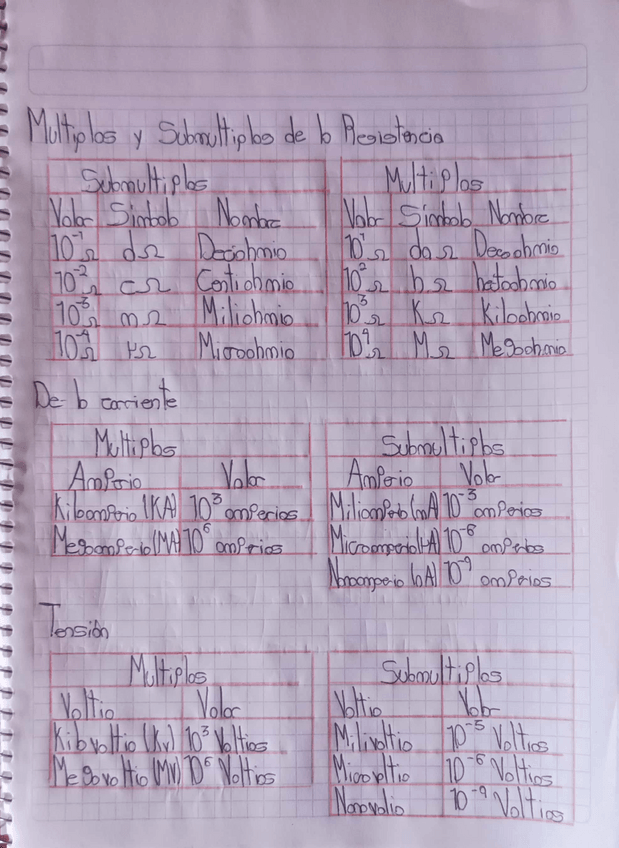 Multiplos y Submultiplos de la Resistencia
Submultiplos
Valor Simbolo Nombre
10⁻¹Ω dΩ Deciohmio
10⁻²Ω cΩ Centiohmio
10⁻³Ω mΩ Miliohmio
10⁻⁴Ω µΩ Microohmio
Multiplos
Valor Símbolo Nombre
10¹Ω daΩ Decaohmio
10²Ω hΩ hetoohmio
10³Ω KΩ Kiloohmio
10⁴Ω MΩ Megaohmio
De la corriente
Multiplos
Amperio Valor
Kiloamperio (KA) 10³ amperios
Megamperio (MA) 10⁶ amperios
Submultiplos
Amperio Valor
Miliamperio (mA) 10⁻³ amperios
Microamperio 10⁻⁶ amperios
Nanoamperio (nA) 10⁻⁹ amperios
Tensión
Multiplos
Voltio Valor
Kilovoltio (Kv) 10³ Voltios
Megavoltio (Mv) 10⁶ Voltios
Submultiplos
Voltio Valor
Milivoltio 10⁻⁵ Voltios
Microvoltio 10⁻⁶ Voltios
Nanovolio 10⁻⁹ Voltios